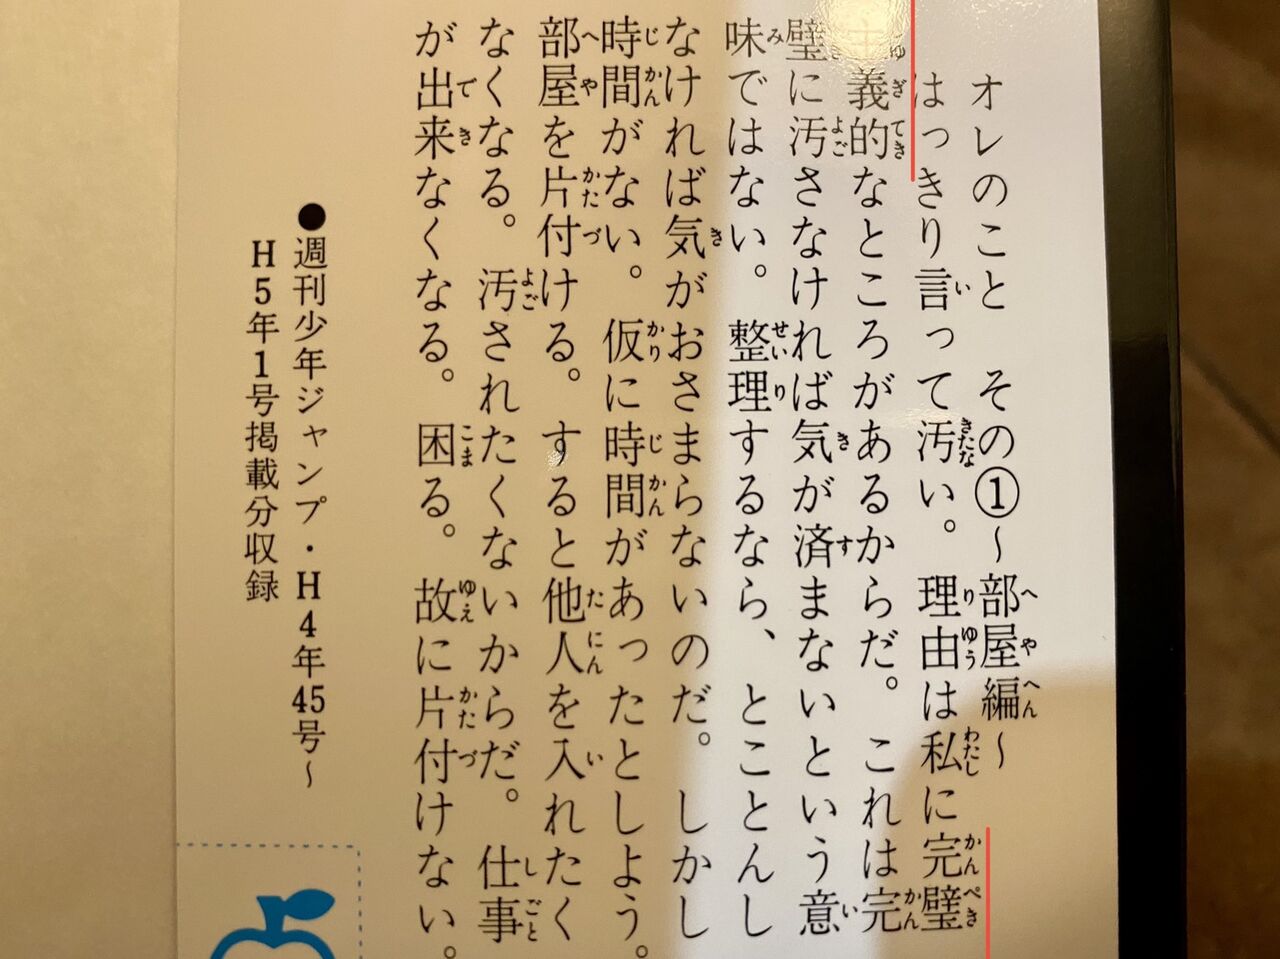 オレのこと　その①～部屋編～
はっきり言って汚い。理由は私に完璧
主義的なところがあるからだ。これは完
璧に汚さなければ気が済まないという意
味ではない。整理するなら、とことんし
なければ気がおさまらないのだ。しかし
時間がない。仮に時間があったとしよう。
部屋を片付ける。すると他人を入れたく
なくなる。汚されたくないからだ。仕事
が出来なくなる。困る。故に片付けない。
●週刊少年ジャンプ・H4年45号～
H5年1号掲載分収録